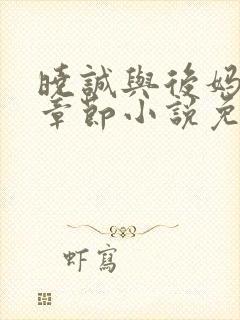 曉誠與後媽
章節小說免
虾寫